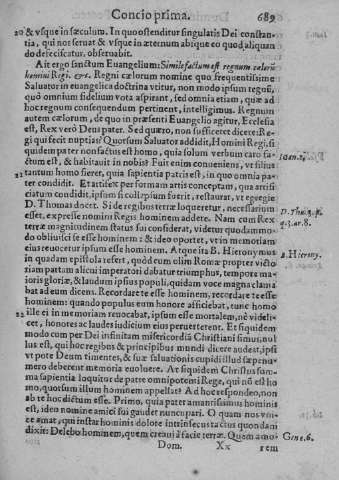 Concio prima. 689
& vsque in sæculum. In quo ostenditur singulatis Dei constan-
tia, qui non seruat & vsque in æternum abique eo quod aliquan
do defeciscatur, obseruabit.
Ait ergo sanctum Euangelium: Simile factum est regnum cælorũ
homini Regi. &c. Regni cælorum nomine quo frequentissime
Saluator in euangelica doctrina vtitur, non modo ipsum regnũ,
quò omnium fidelium vota aspirant, sed omnia etiam, quæ ad
hoc regnum consequendum pertinent, intelligimus. Regnum
autem cælorum, de quo in præsenti Euangelio agitur, Ecclesia
est, Rex verò Deus pater. Sed quæro, non sufficeret dicere: Re-
gi qui fecit nuptias? Quorsum Saluator addidit, Homini Regi, si
quidem pater non factus est homo, quia solum verbum caro fa-
ctum est, & habitauit in nobis? Fuit enim conueniens, vt filius
tantum homo fieret, quia sapientia patris est, in quo omnia pa-
ter condidit. Et artifex per formam artis conceptam, qua artifi-
ciatum condidit, ipsum si collapsum fuerit, restaurat, vt egregie
D. Thomas docet. Si de regibus terræ loqueretur, necessarium
esset, expresse nomini Regis hominem addere. Nam cum Rex
terræ magnitudinem status sui considerat, videtur quodammo-
do obliuisci se esse hominem: & ideo oportet, vt in memoriam
eius reuocetur ipsum esse hominem. Atque ita B. Hieronymus
in quadam epistola refert, quòd cum olim Romæ propter victo
riam partam alicui imperatori dabatur triumphus, tempore ma-
ioris gloriæ, & laudum ipsius populi, quidam voce magna clama
bat ad eum dicens. Recordare te esse hominem, recordare te esse
hominem: quando populus eum honore afficiebat, tunc homo
ille ei in memoriam reuocabat, ipsum esse mortalem, nè videli-
cet, honores ac laudes iudicium eius peruerterent. Et siquidem
modo cum per Dei infinitam misericordiã Christiani simus, nul
lus est, qui hoc regibus & principibus mundi dicere audeat, ipsi
vt pote Deum timentes, & suæ saluationis cupidi illud sæpenu-
mero deberent memoria euoluere. At siquidem Christus sum-
ma sapientia loquitur de patre omnipotenti Rege, qui nũ est ho
mo, quorsum illum hominem appellat? Ad hoc respondeo, non
ab te hoc dictum esse. Primo, quia pater amantissimus hominis
est, ideo nomine amici sui gaudet nuncupari. O quam nos ve-
re amat, qui instar hominis dolore intrinsecus tactus quondam
dixit: Delebo hominem, quem creaui à facie terræ. Quem amo-
Dom. Xx rem
20
21
22
Ioan. 1.
D. Tho. 3. p.
q. 3. ar. 8.
B. Hierony.
Gene. 6.